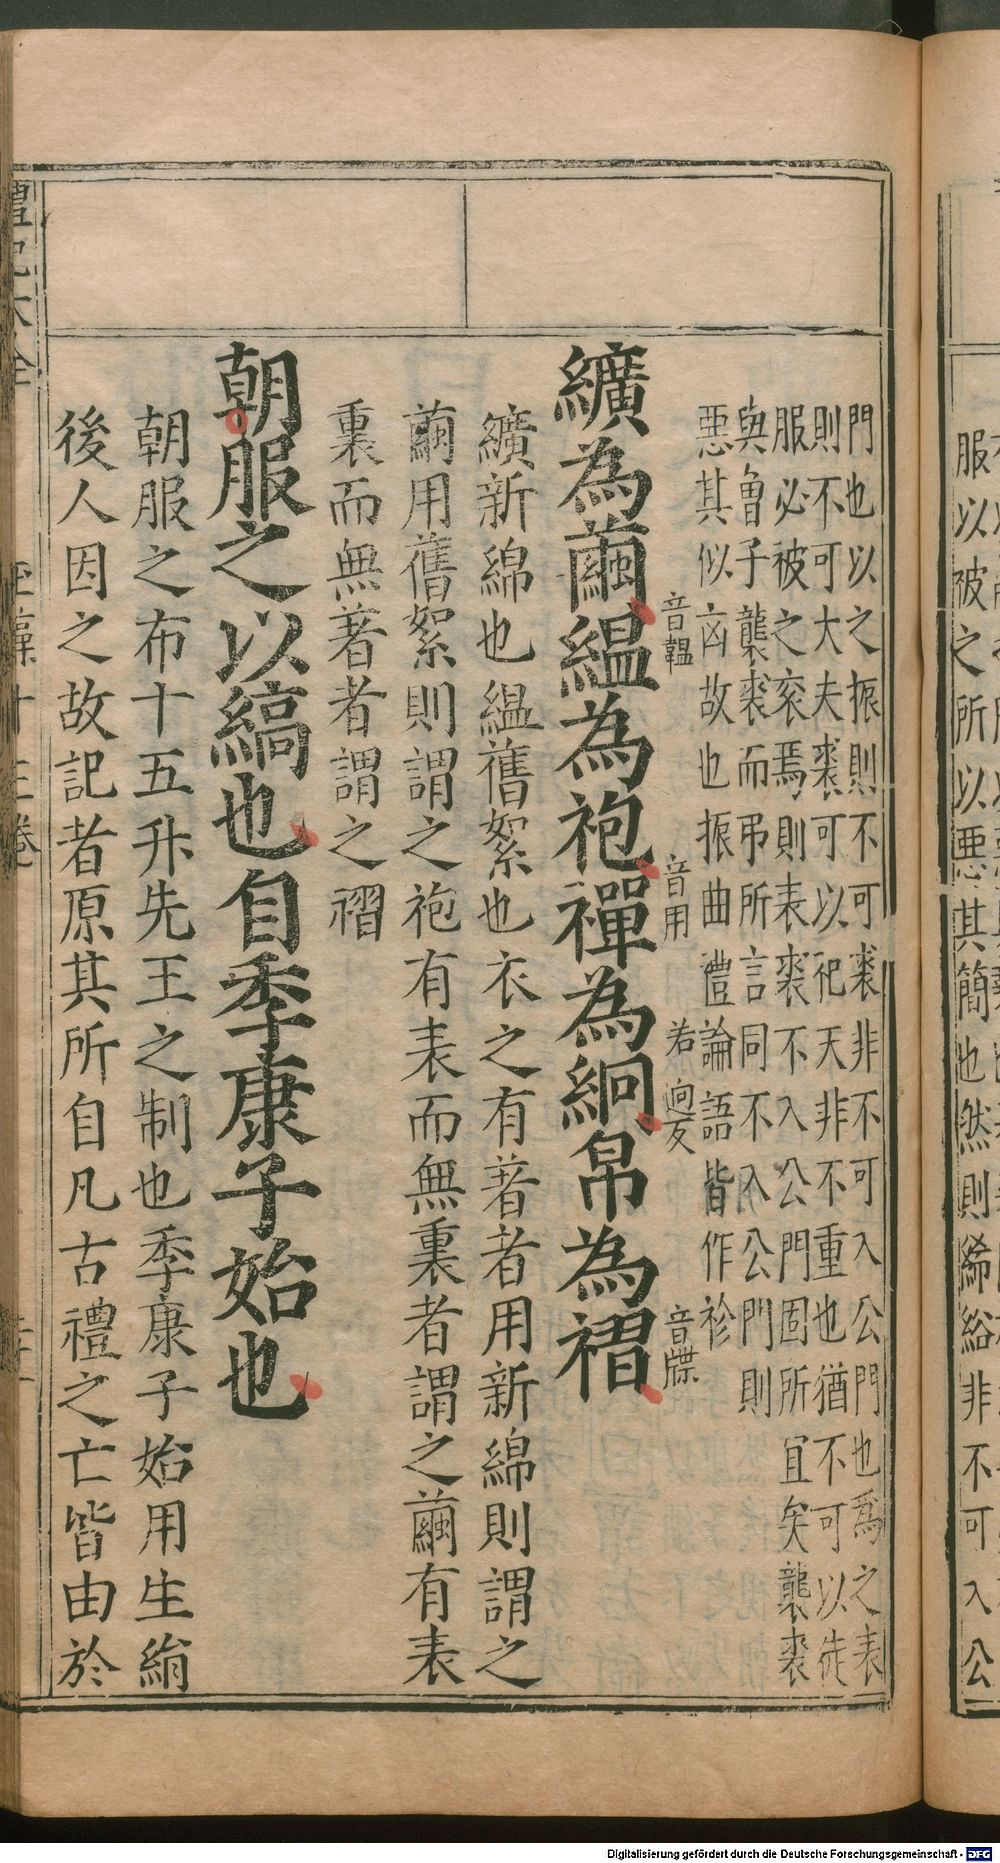 服以被之所以惡其簡也然則絺綌非不可入公
門也以之振則不可裘非不可入公門也為之表
則不可大夫裘可以祀天非不重也猶不可以徒
服必被之衮焉則表裘不入公門固所宜矣襲裘
與魯子襲裘而弔所言同不入公門則
惡其似凶故也振曲禮論語皆作袗
纊為繭縕為袍襌為絅帛為褶
音韞
音用
若迥反
音牒
纊新綿也縕舊絮也衣之有著者用新綿則謂之
繭用舊絮則謂之袍有表而無裏者謂之繭有表
裏而無著者謂之褶
朝服之以縞也自季康子始也
朝服之布十五升先王之制也季康子始用生絹
後人因之故記者原其所自凡古禮之亡皆由於
禮記大全
玉藻十三卷
Digitalisierung gefördert durch die Deutsche Forschungsgemeinschaft - DFG